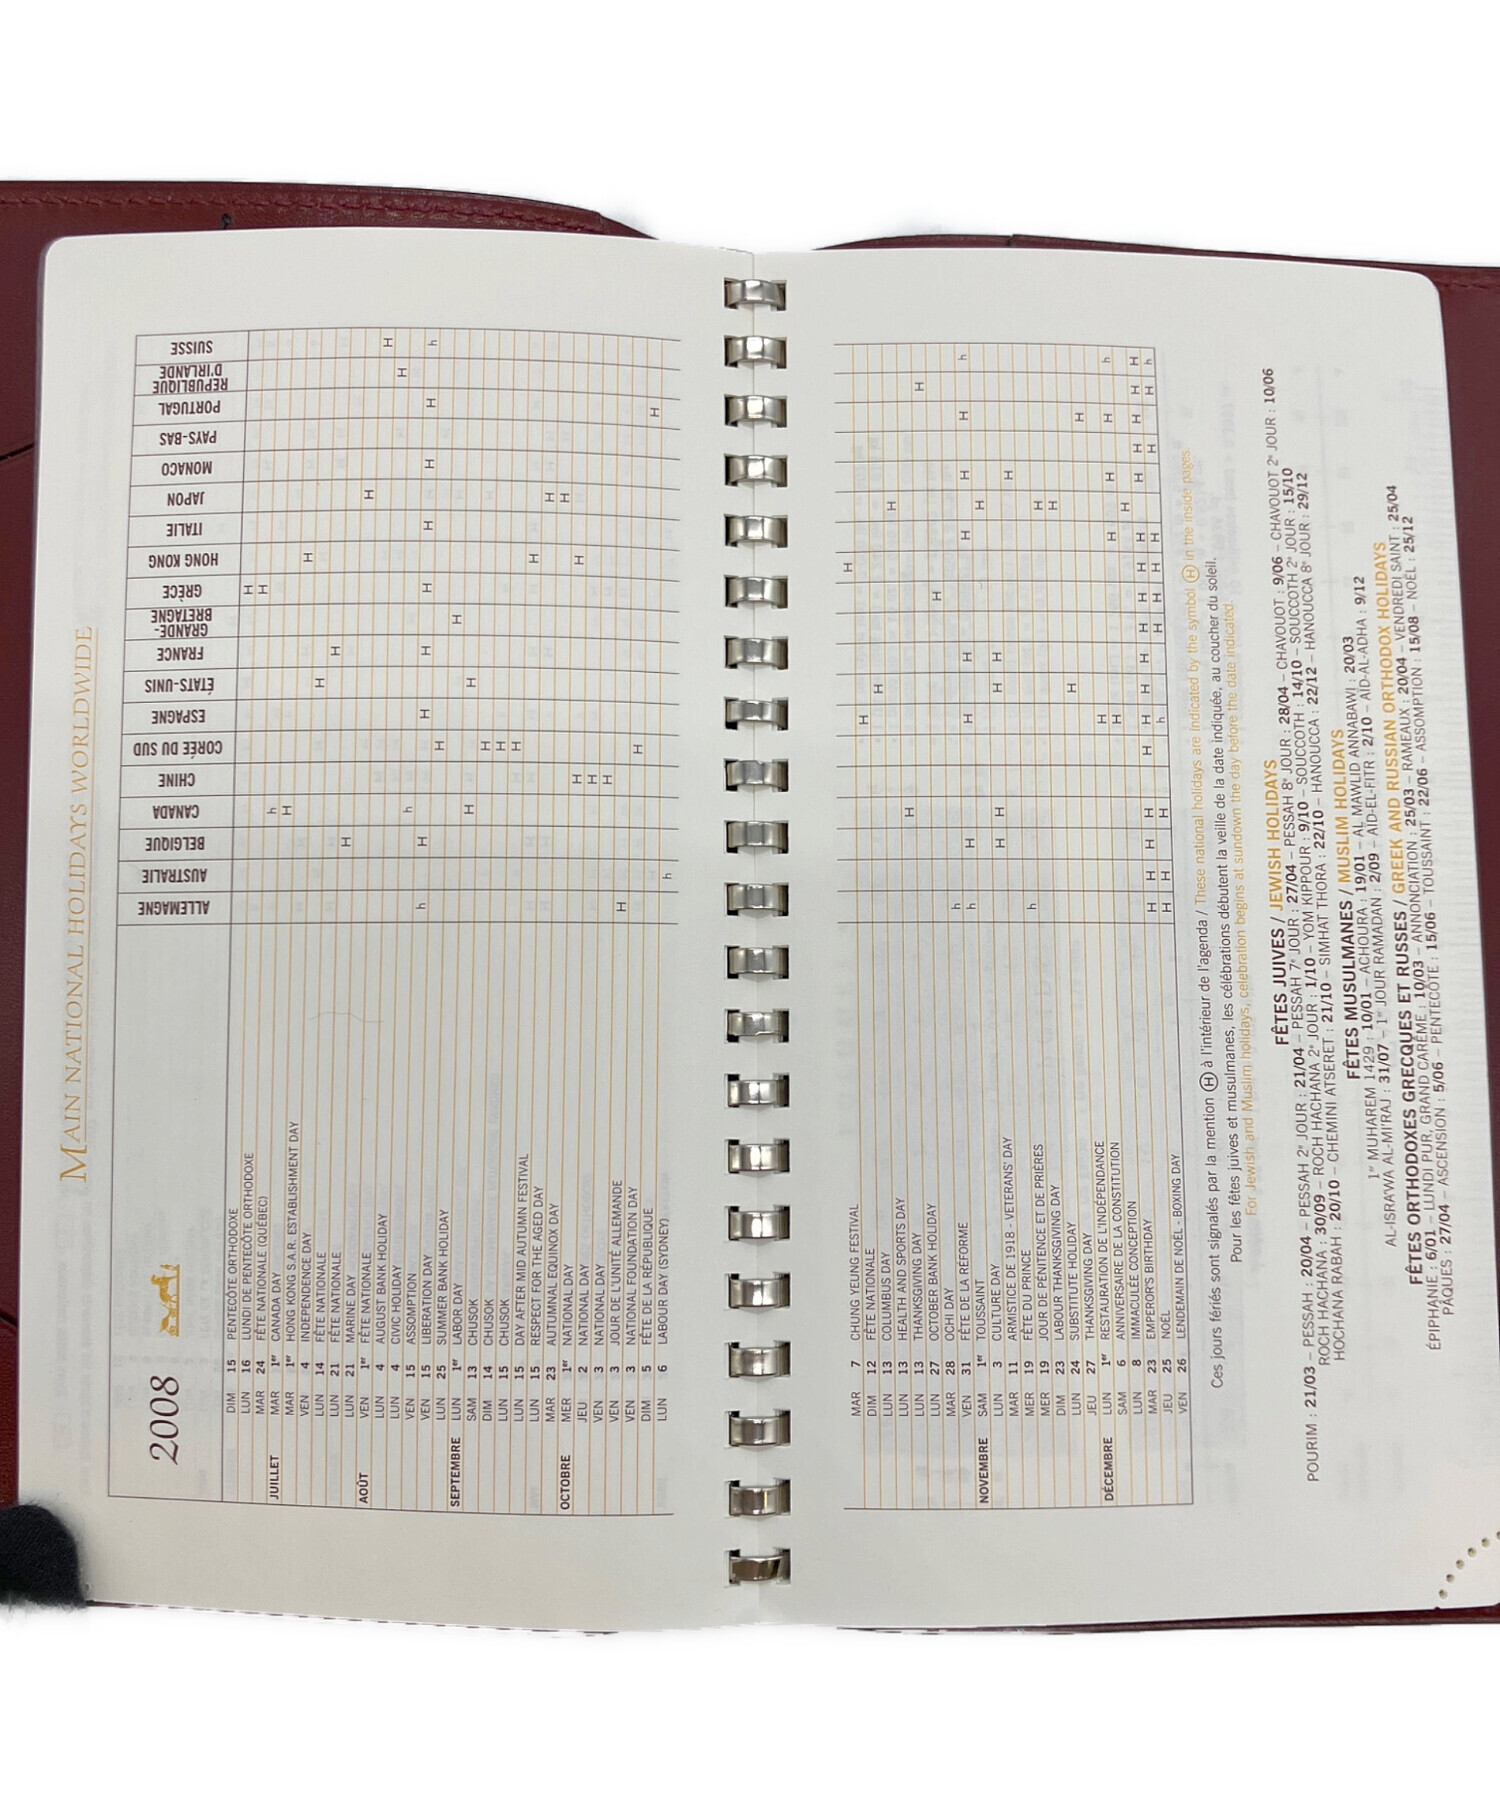 MAIN NATIONAL HOLIDAYS WORLDWIDE
2008
ALLEMAGNE
AUSTRALIE
BELGIQUE
CANADA
CHINE
CORÉE DU SUD
ESPAGNE
ÉTATS-UNIS
FRANCE
GRANDE-
BRETAGNE
GRÈCE
HONG KONG
ITALIE
JAPON
MONACO
PAYS-BAS
PORTUGAL
RÉPUBLIQUE
D'IRLANDE
SUISSE
DIM 15 PENTECÔTE ORTHODOXE
LUN 16 LUNDI DE PENTECÔTE ORTHODOXE H
MAR 24 FÊTE NATIONALE (QUÉBEC) H
JUILLET MAR 1er CANADA DAY h
MAR 1er HONG KONG S.A.R. ESTABLISHMENT DAY H
VEN 4 INDEPENDENCE DAY H
LUN 14 FÊTE NATIONALE H
LUN 21 FÊTE NATIONALE H
LUN 21 MARINE DAY H
AOÛT VEN 1er FÊTE NATIONALE H
LUN 4 AUGUST BANK HOLIDAY H
LUN 4 CIVIC HOLIDAY H
VEN 15 ASSOMPTION h
VEN 15 LIBERATION DAY h H H H H H H H h
LUN 25 SUMMER BANK HOLIDAY H
SEPTEMBRE LUN 1er LABOR DAY H
SAM 13 CHUSOK H H
DIM 14 CHUSOK H
LUN 15 CHUSOK H
LUN 15 DAY AFTER MID AUTUMN FESTIVAL H
LUN 15 RESPECT FOR THE AGED DAY H
MAR 23 AUTUMNAL EQUINOX DAY H
OCTOBRE MER 1er NATIONAL DAY H
JEU 2 NATIONAL DAY H H
VEN 3 NATIONAL DAY H
VEN 3 JOUR DE L'UNITÉ ALLEMANDE H
VEN 3 NATIONAL FOUNDATION DAY H
DIM 5 FÊTE DE LA RÉPUBLIQUE H
LUN 6 LABOUR DAY (SYDNEY) h
MAR 7 CHUNG YEUNG FESTIVAL H
DIM 12 FÊTE NATIONALE H
LUN 13 COLUMBUS DAY H
LUN 13 HEALTH AND SPORTS DAY H
LUN 13 THANKSGIVING DAY H
LUN 27 OCTOBER BANK HOLIDAY H
MAR 28 OCHI DAY H
VEN 31 FÊTE DE LA RÉFORME h
NOVEMBRE SAM 1er TOUSSAINT h H H H H H H h
LUN 3 CULTURE DAY H
MAR 11 ARMISTICE DE 1918 - VETERANS' DAY H H H H
MER 19 FÊTE DU PRINCE H
MER 19 JOUR DE PÉNITENCE ET DE PRIÈRES h
DIM 23 LABOUR THANKSGIVING DAY H
LUN 24 SUBSTITUTE HOLIDAY H
JEU 27 THANKSGIVING DAY H
DÉCEMBRE LUN 1er RESTAURATION DE L'INDÉPENDANCE H
SAM 6 ANNIVERSAIRE DE LA CONSTITUTION H
LUN 8 IMMACULÉE CONCEPTION H H H H h
MAR 23 EMPEROR'S BIRTHDAY H
JEU 25 NOËL H H H H H H H H H H H H H H H H
VEN 26 LENDEMAIN DE NOËL - BOXING DAY H H H h H H H H H H h
Ces jours fériés sont signalés par la mention Ⓗ à l'intérieur de l'agenda / These national holidays are indicated by the symbol Ⓗ in the inside pages.
Pour les fêtes juives et musulmanes, les célébrations débutent la veille de la date indiquée, au coucher du soleil.
For Jewish and Muslim holidays, celebration begins at sundown the day before the date indicated.
FÊTES JUIVES / JEWISH HOLIDAYS
POURIM : 21/03 – PESSAH : 20/04 – PESSAH 2e JOUR : 21/04 – PESSAH 7e JOUR : 27/04 – PESSAH 8e JOUR : 28/04 – CHAVOUOT : 9/06 – CHAVOUOT 2e JOUR : 10/06
ROCH HACHANA : 30/09 – ROCH HACHANA 2e JOUR : 1/10 – YOM KIPPOUR : 9/10 – SOUCCOTH : 14/10 – SOUCCOTH 2e JOUR : 15/10
HOCHANA RABAH : 20/10 – CHEMINI ATSERET : 21/10 – SIMHAT THORA : 22/10 – HANOUCCA : 22/12 – HANOUCCA 8e JOUR : 29/12
FÊTES MUSULMANES / MUSLIM HOLIDAYS
1er MUHAREM 1429 : 10/01 – ACHOURA : 19/01 – AL MAWLID ANNABAWI : 20/03
AL-ISRA'WA AL-MI'RAJ : 31/07 – 1er JOUR RAMADAN : 2/09 – AÏD-EL-FITR : 2/10 – AÏD-AL-ADHA : 9/12
FÊTES ORTHODOXES GRECQUES ET RUSSES / GREEK AND RUSSIAN ORTHODOX HOLIDAYS
ÉPIPHANIE : 6/01 – LUNDI PUR, GRAND CARÊME : 10/03 – ANNONCIATION : 25/03 – RAMEAUX : 20/04 – VENDREDI SAINT : 25/04
PÂQUES : 27/04 – ASCENSION : 5/06 – PENTECÔTE : 15/06 – TOUSSAINT : 22/06 – ASSOMPTION : 15/08 – NOËL : 25/12